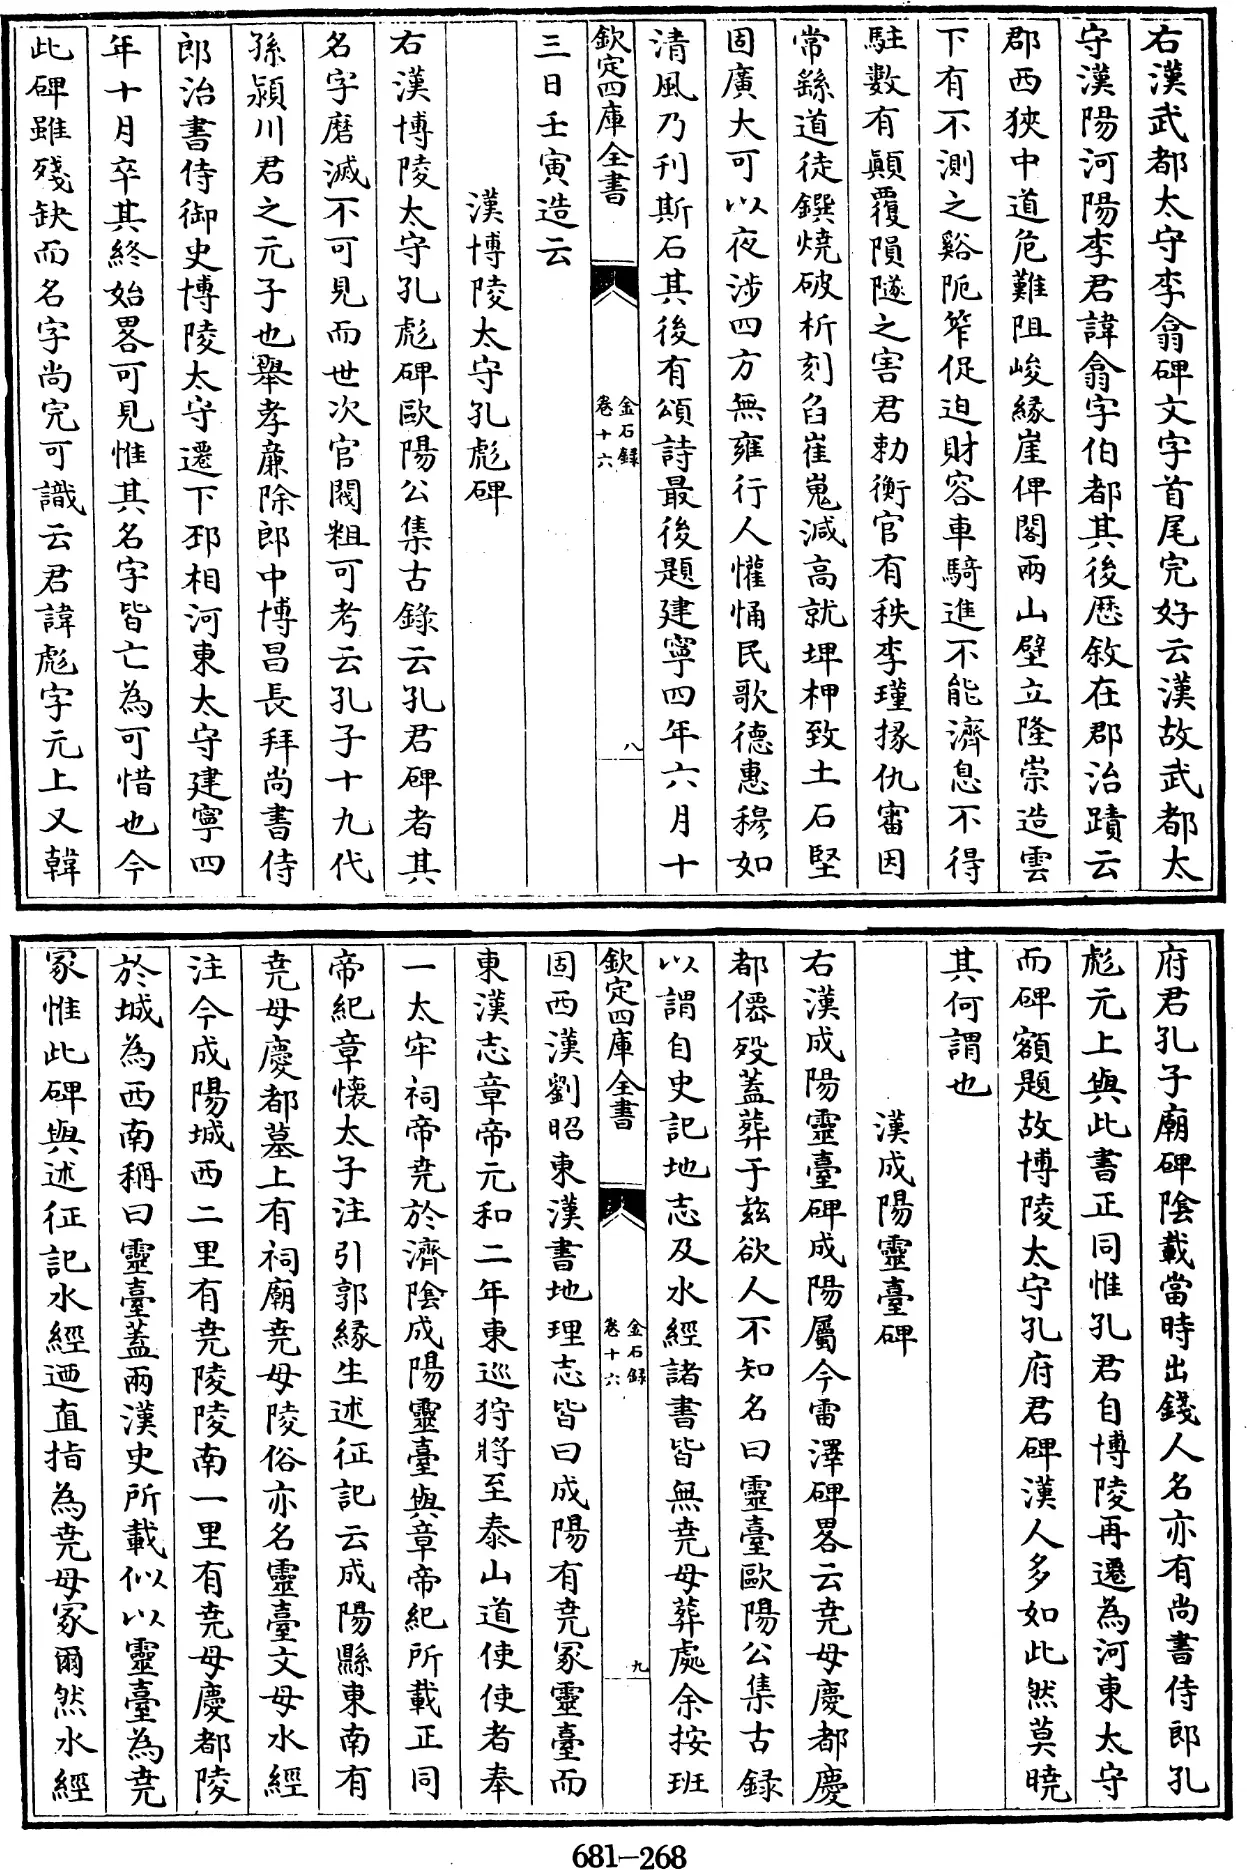 右漢武都太守李翕碑文字首尾完好云漢故武都太
守漢陽河陽李君諱翕字伯都其後歴敘在郡治蹟云
郡西狹中道危難阻峻緣崖俾閣兩山壁立隆崇造雲
下有不測之谿阨笮促迫財容車騎進不能濟息不得
駐數有顚覆隕隧之害君勅衡官有秩李瑾掾仇審因
常繇道徒鐉燒破析刻臽崔嵬減高就埤柙致土石堅
固廣大可以夜涉四方無雍行人懽悀民歌德惠穆如
清風乃刊斯石其後有頌詩最後題建寧四年六月十
欽定四庫全書
金石錄
卷十六
八
三日壬寅造云
漢博陵太守孔彪碑
右漢博陵太守孔彪碑歐陽公集古錄云孔君碑者其
名字磨滅不可見而世次官閥粗可考云孔子十九代
孫潁川君之元子也舉孝廉除郎中博昌長拜尚書侍
郎治書侍御史博陵太守遷下邳相河東太守建寧四
年十月卒其終始畧可見惟其名字皆亡為可惜也今
此碑雖殘缺而名字尚完可識云君諱彪字元上又韓
府君孔子廟碑陰載當時出錢人名亦有尚書侍郎孔
彪元上與此書正同惟孔君自博陵再遷為河東太守
而碑額題故博陵太守孔府君碑漢人多如此然莫曉
其何謂也
漢成陽靈臺碑
右漢成陽靈臺碑成陽屬今雷澤碑畧云堯母慶都慶
都僊殁蓋葬于兹欲人不知名曰靈臺歐陽公集古録
以謂自史記地志及水經諸書皆無堯母葬處余按班
欽定四庫全書
金石錄
卷十六
九
固西漢劉昭東漢書地理志皆曰成陽有堯冢靈臺而
東漢志章帝元和二年東巡狩將至泰山道使使者奉
一太牢祠帝堯於濟陰成陽靈臺與章帝紀所載正同
帝紀章懷太子注引郭緣生述征記云成陽縣東南有
堯母慶都墓上有祠廟堯母陵俗亦名靈臺文母水經
注今成陽城西二里有堯陵陵南一里有堯母慶都陵
於城為西南稱曰靈臺蓋兩漢史所載似以靈臺為堯
冢惟此碑與述征記水經迺直指為堯母冢爾然水經
681-268